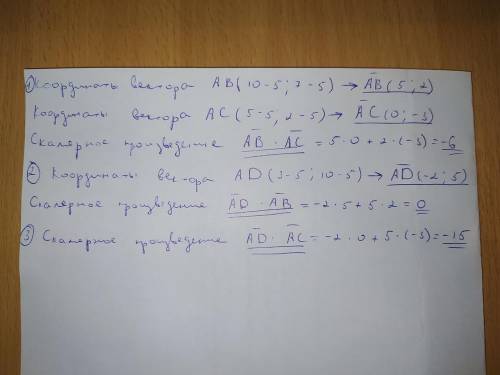 ① Координаты вектора AB(10-5; 7-5) → AB(5; 2)
Координаты вектора AC(5-5; 2-5) → AC(0; -3)
Скалярное произведение AB · AC = 5·0+2·(-3)=-6
② Координаты вектора AD(3-5; 10-5) → AD(-2; 5)
Скалярное произведение AD · AB = -2·5+5·2=0
③ Скалярное произведение AD · AC = -2·0+5·(-3)=-15